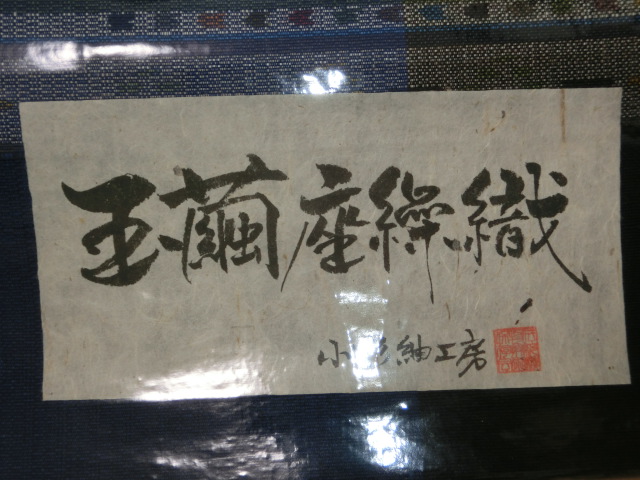 玉繭座繰織
小 紬工房